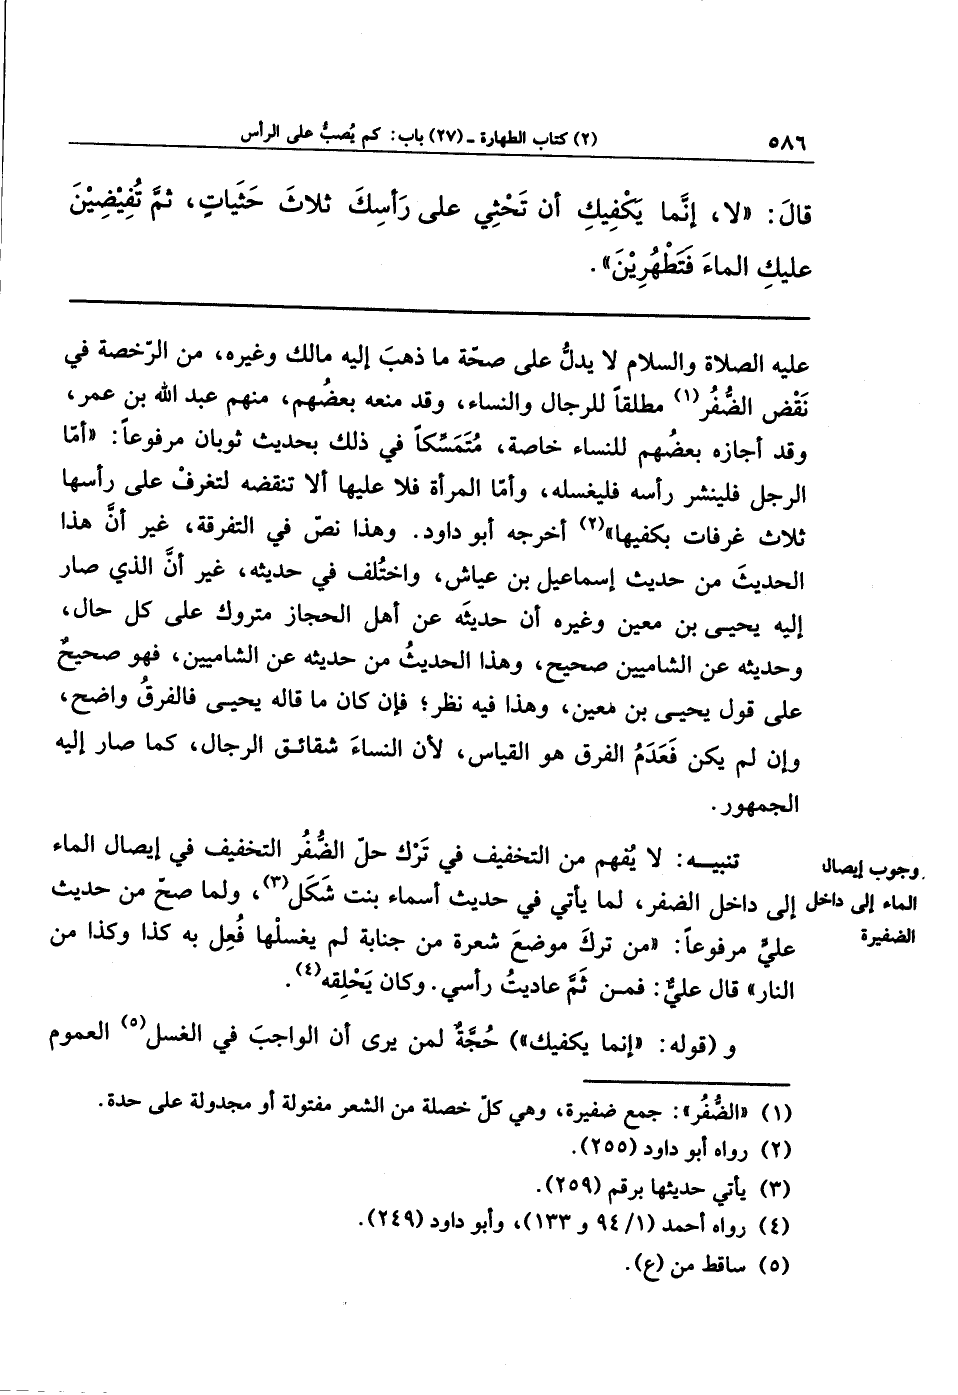 ٥٨٦
(٢) كتاب الطهارة ـ (٢٧) باب: كم يُصبُّ على الرأس
قالَ: «لا، إنَّما يَكْفِيكِ أن تَحْثِي على رَأسِكَ ثلاثَ حَثَياتٍ، ثمَّ تُفِيْضِيْنَ
عليكِ الماءَ فَتَطْهُرِيْنَ».
عليه الصلاة والسلام لا يدلُّ على صحّة ما ذهبَ إليه مالك وغيره، من الرّخصة في
نَقْض الضُّفُر(١) مطلقاً للرجال والنساء، وقد منعه بعضُهم، منهم عبد الله بن عمر،
وقد أجازه بعضُهم للنساء خاصة، مُتَمَسِّكاً في ذلك بحديث ثوبان مرفوعاً: «أمّا
الرجل فلينشر رأسه فليغسله، وأمّا المرأة فلا عليها ألا تنقضه لتغرفْ على رأسها
ثلاث غرفات بكفيها»(٢) أخرجه أبو داود. وهذا نصّ في التفرقة، غير أنَّ هذا
الحديثَ من حديث إسماعيل بن عياش، واختُلف في حديثه، غير أنَّ الذي صار
إليه يحيـى بن معين وغيره أن حديثَه عن أهل الحجاز متروك على كل حال،
وحديثه عن الشاميين صحيح، وهذا الحديثُ من حديثه عن الشاميين، فهو صحيحٌ
على قول يحيـى بن مَعين، وهذا فيه نظر؛ فإن كان ما قاله يحيـى فالفرقُ واضح،
وإن لم يكن فَعَدَمُ الفرق هو القياس، لأن النساءَ شقائق الرجال، كما صار إليه
الجمهور.
تنبيـه: لا يُفهم من التخفيف في تَرْك حلّ الضُّفُر التخفيف في إيصال الماء
إلى داخل الضفر، لما يأتي في حديث أسماء بنت شَكَل(٣)، ولما صحّ من حديث
عليٍّ مرفوعاً: «من تركَ موضعَ شعرة من جنابة لم يغسلْها فُعِل به كذا وكذا من
النار» قال عليٌّ: فمـن ثَمَّ عاديتُ رأسي. وكان يَحْلِقه(٤).
وجوب إيصال
الماء إلى داخل
الضفيرة
و (قوله: «إنما يكفيك») حُجَّةٌ لمن يرى أن الواجبَ في الغسل(٥) العموم
(١) «الضُّفُر»: جمع ضفيرة، وهي كلّ خصلة من الشعر مفتولة أو مجدولة على حدة.
(٢) رواه أبو داود (٢٥٥).
(٣) يأتي حديثها برقم (٢٥٩).
(٤) رواه أحمد (١/ ٩٤ و ١٣٣)، وأبو داود (٢٤٩).
(٥) ساقط من (ع).